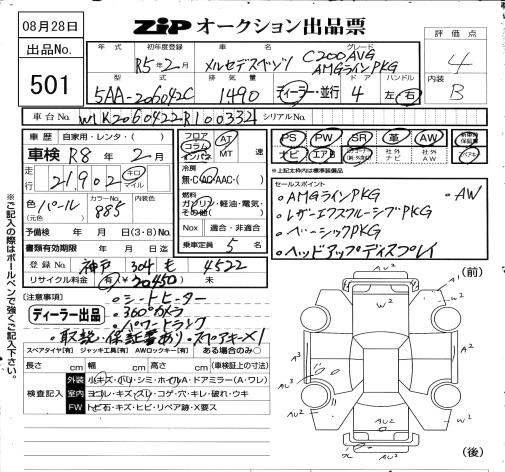 08月28日
ZiP オークション出品票
出品No.
501
年式 初年度登録 車名 グレード
R5年2月 メルセデスベンツ C200AVG AMGラインPKG
型式 排気量 ドア ハンドル
5AA-206042C 1490 ディーラー・並行 4 左・右
評価点
4
内装
B
車台No. W1K2060422R100332 シリアルNo.
車歴 自家用・レンタ・( )
車検 R8年2月
走行 21,902 キロ マイル
色 パール (元色) カラーNo. 885 内装色
予備検 年 月 日(3・8)No.
書類有効期限 年 月 日迄
登録No. 神戸 304 も 4522
リサイクル料金 有(¥20450) 未
フロア コラム インパネ
AT MT 速
冷房 無・C・AC・AAC・( )
燃料
ガソリン・軽油・電気・その他( )
Nox 適合・非適合
乗車定員 5 名
PS PW SR 革 AW
ナビ エアB 社外ナビ 社外AW
※上記太枠内は標準装備品
セールスポイント
・AMGラインPKG ・AW
・レザーエクスクルーシブPKG
・ベーシックPKG
・ヘッドアップディスプレイ
[注意事項]
ディーラー出品
・シートヒーター
・360°カメラ
・パワートランク
・取説・保証書あり・スペアキー×1
スペアタイヤ[有] ジャッキ工具[有] AWロックキー[有] ある場合のみ○
長さ cm 幅 cm 高さ cm (車検証上の寸法)
検査記入
外装 小キズ・ハリ・シミ・ホイルA・ドアミラー(A・ワレ)
室内 ヨゴレ・キズ・スレ・コゲ・穴・キレ・破れ・ウキ
FW トビ石・キズ・ヒビ・リペア跡・X要ス
※ご記入の際はボールペンで強くご記入下さい。
(前)
AU2
A1
W2
W2
A3
A2
AU3
AU2
W2
AU2
(後)